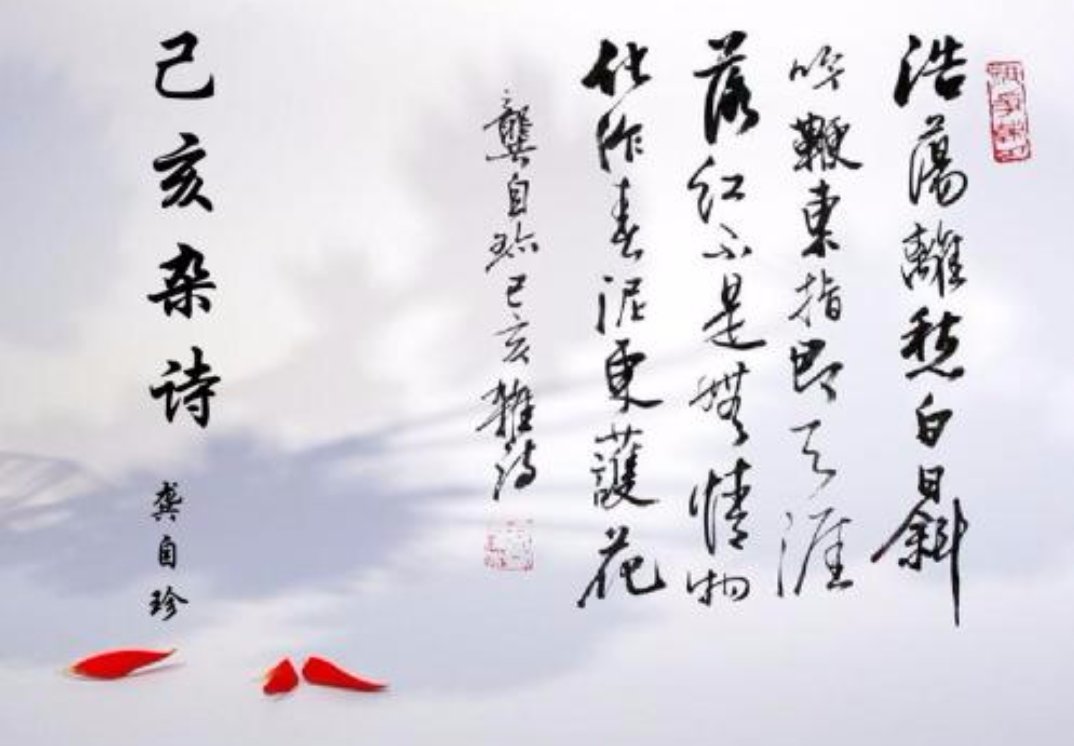 浩蕩離愁白日斜
吟鞭東指即天涯
落紅不是無情物
化作春泥更護花
龔自珍己亥雜詩
己亥杂诗
龚自珍